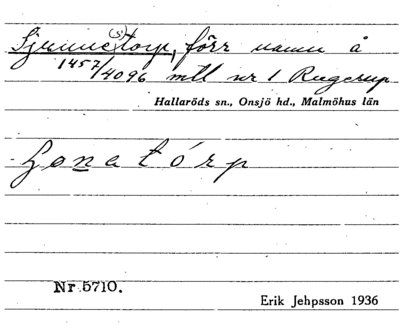 (s)
Sjunnetorp, förr namn å
1457/4096 mtl nr 1 Rugerup
Hallaröds sn., Onsjö hd., Malmöhus län
tórp
Nr 5710.
Erik Jehpsson 1936